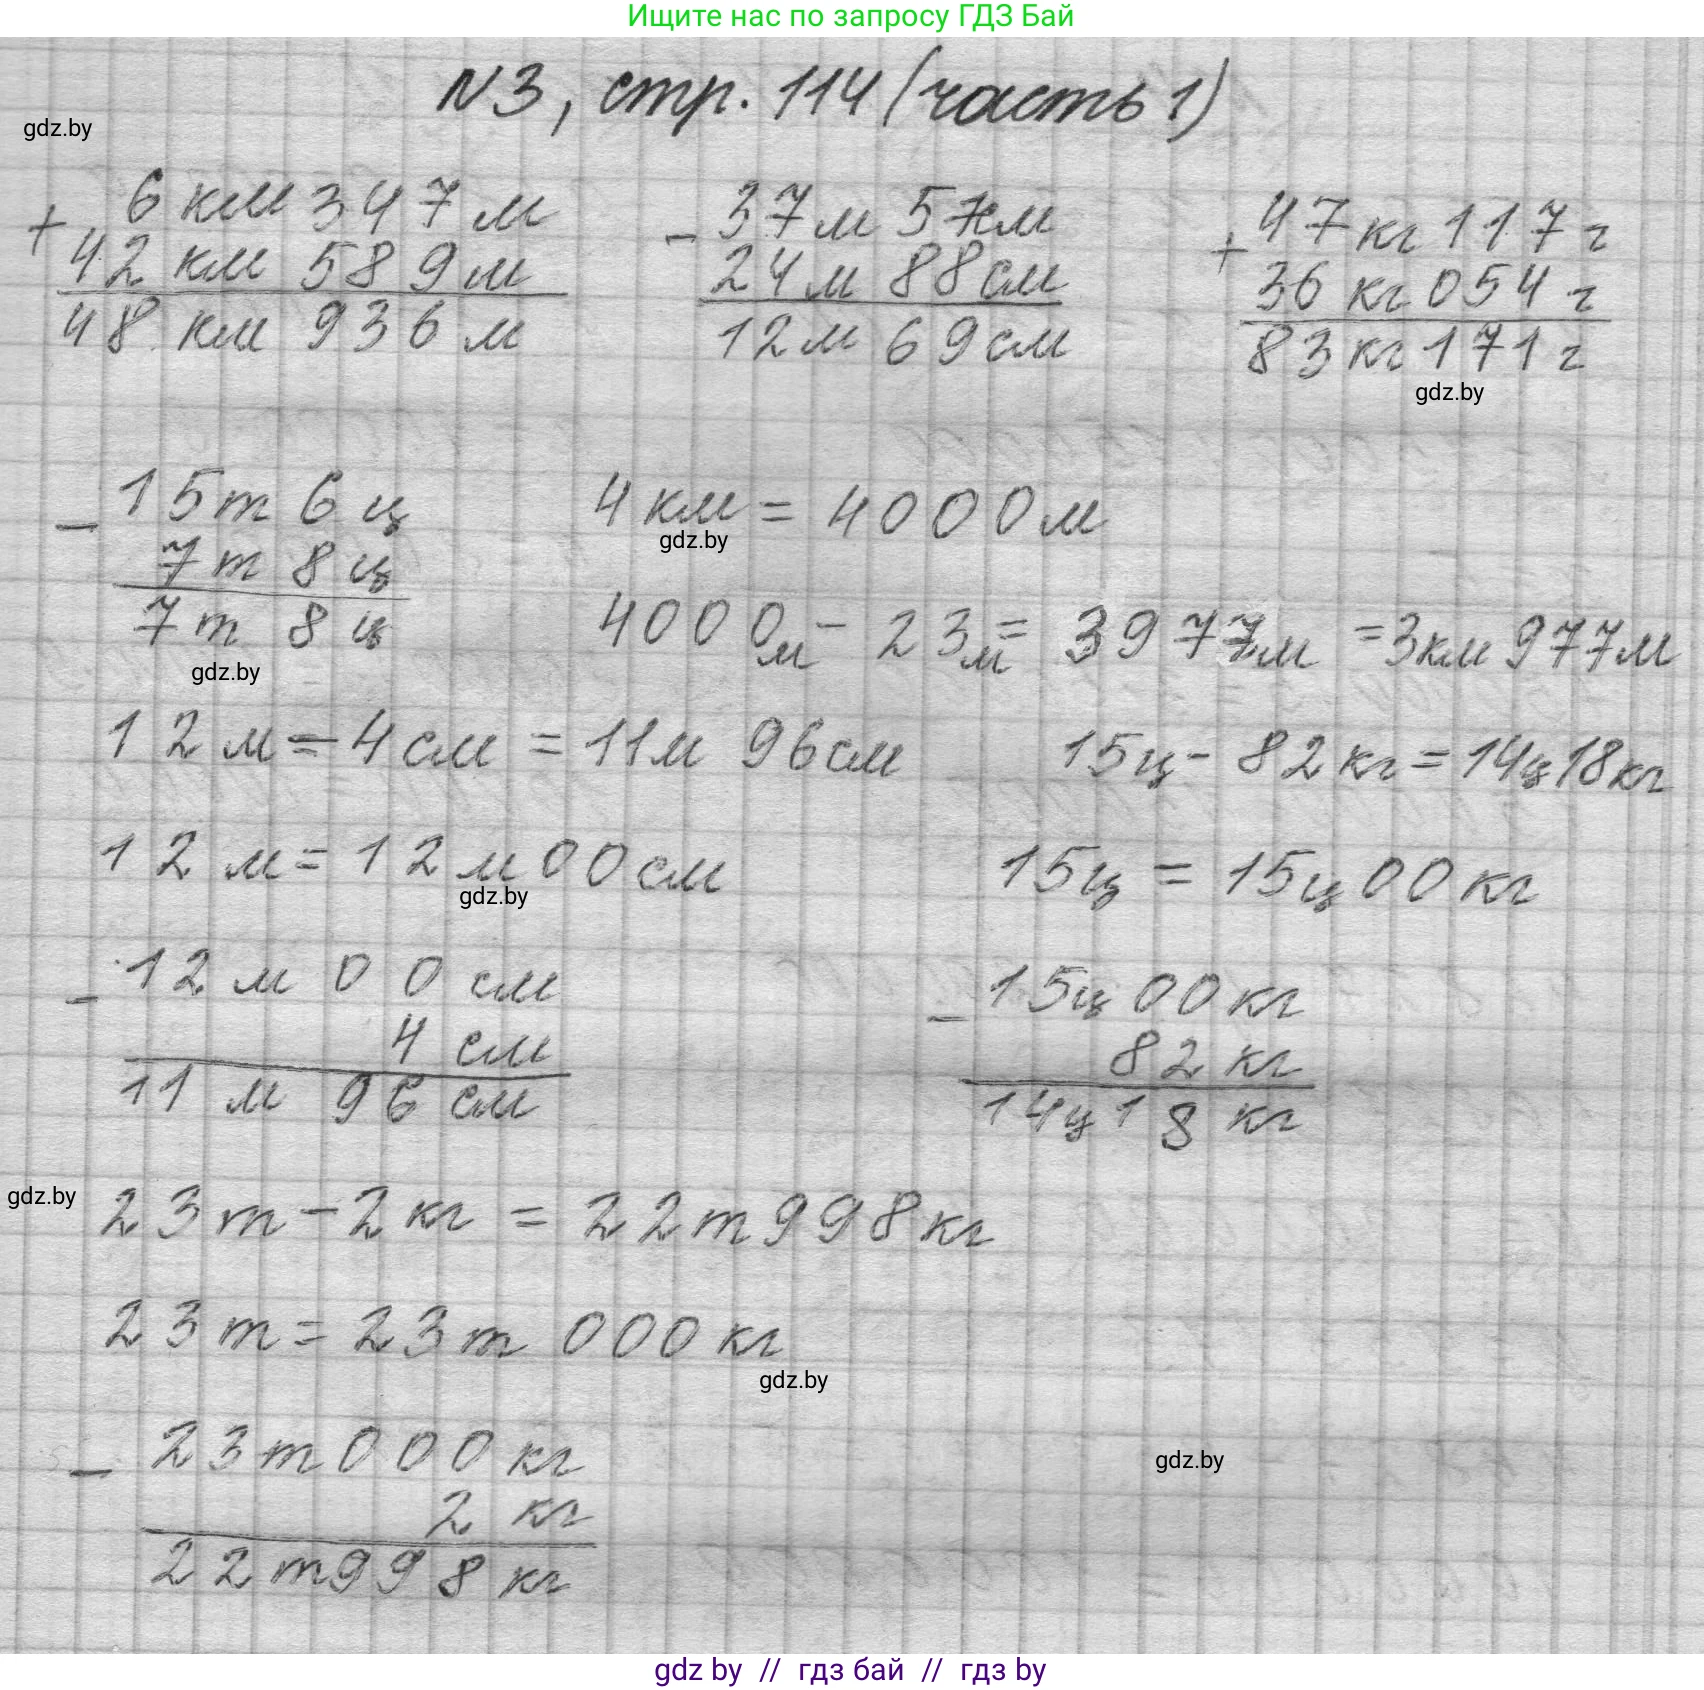 Ищите нас по запросу ГДЗ Бай
N3, стр. 114 (часть 1)
gdz.by
+ 6 км 347 м
42 км 589 м
48 км 936 м
- 37м 57см
24м 88см
12м 69см
+ 47кг 117г
36кг 054г
83кг 171г
gdz.by
- 15т 6ц
7т 8ц
7т 8ц
gdz.by
4км = 4000м
gdz.by
4000м - 23м = 3977м = 3км 977м
12м - 4см = 11м 96см
15ц - 82кг = 14ц 18кг
12м = 12м 00см
gdz.by
15ц = 15ц 00кг
- 12м 00см
4 см
11 м 96 см
- 15ц 00кг
82 кг
14ц 18 кг
gdz.by
23т - 2кг = 22т 998кг
23т = 23т 000кг
gdz.by
- 23т 000кг
2 кг
22т 998кг
gdz.by
gdz by // гдз бай // гдз by